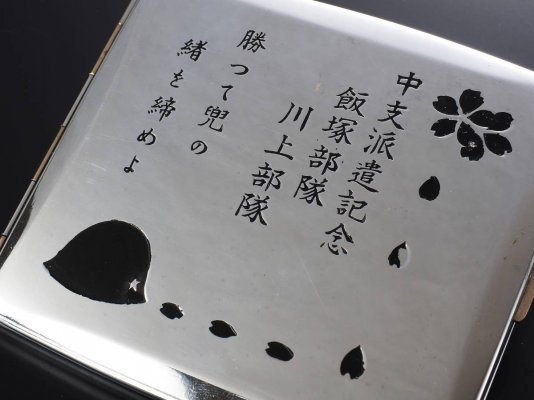 中支派遣記念
飯塚部隊
川上部隊
勝つて兜の
緒を締めよ